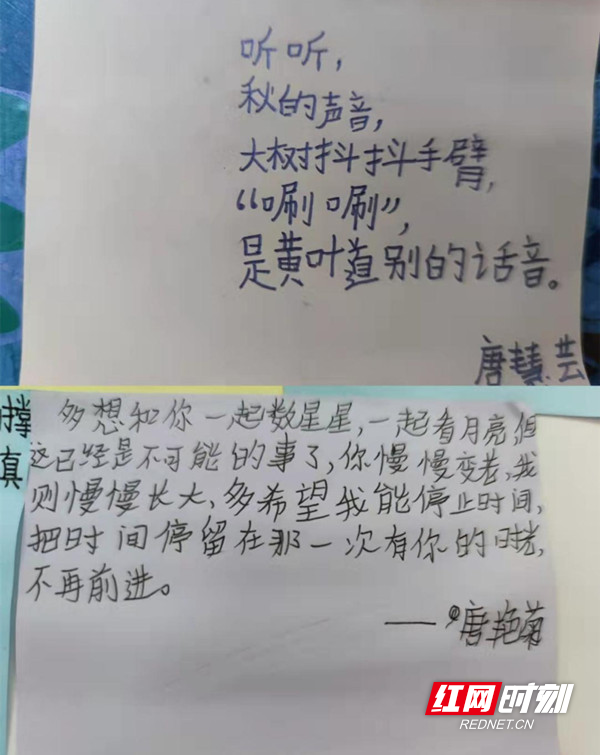 听听，
秋的声音，
大树抖抖手臂，
“唰唰”，
是黄叶道别的话音。
唐慧芸
撑
真
多想和你一起数星星，一起看月亮，但
这已经是不可能的事了，你慢慢变老，我
则慢慢长大，多希望我能停止时间，
把时间停留在那一次有你的时光，
不再前进。
——唐艳菊
红网时刻
REDNET.CN